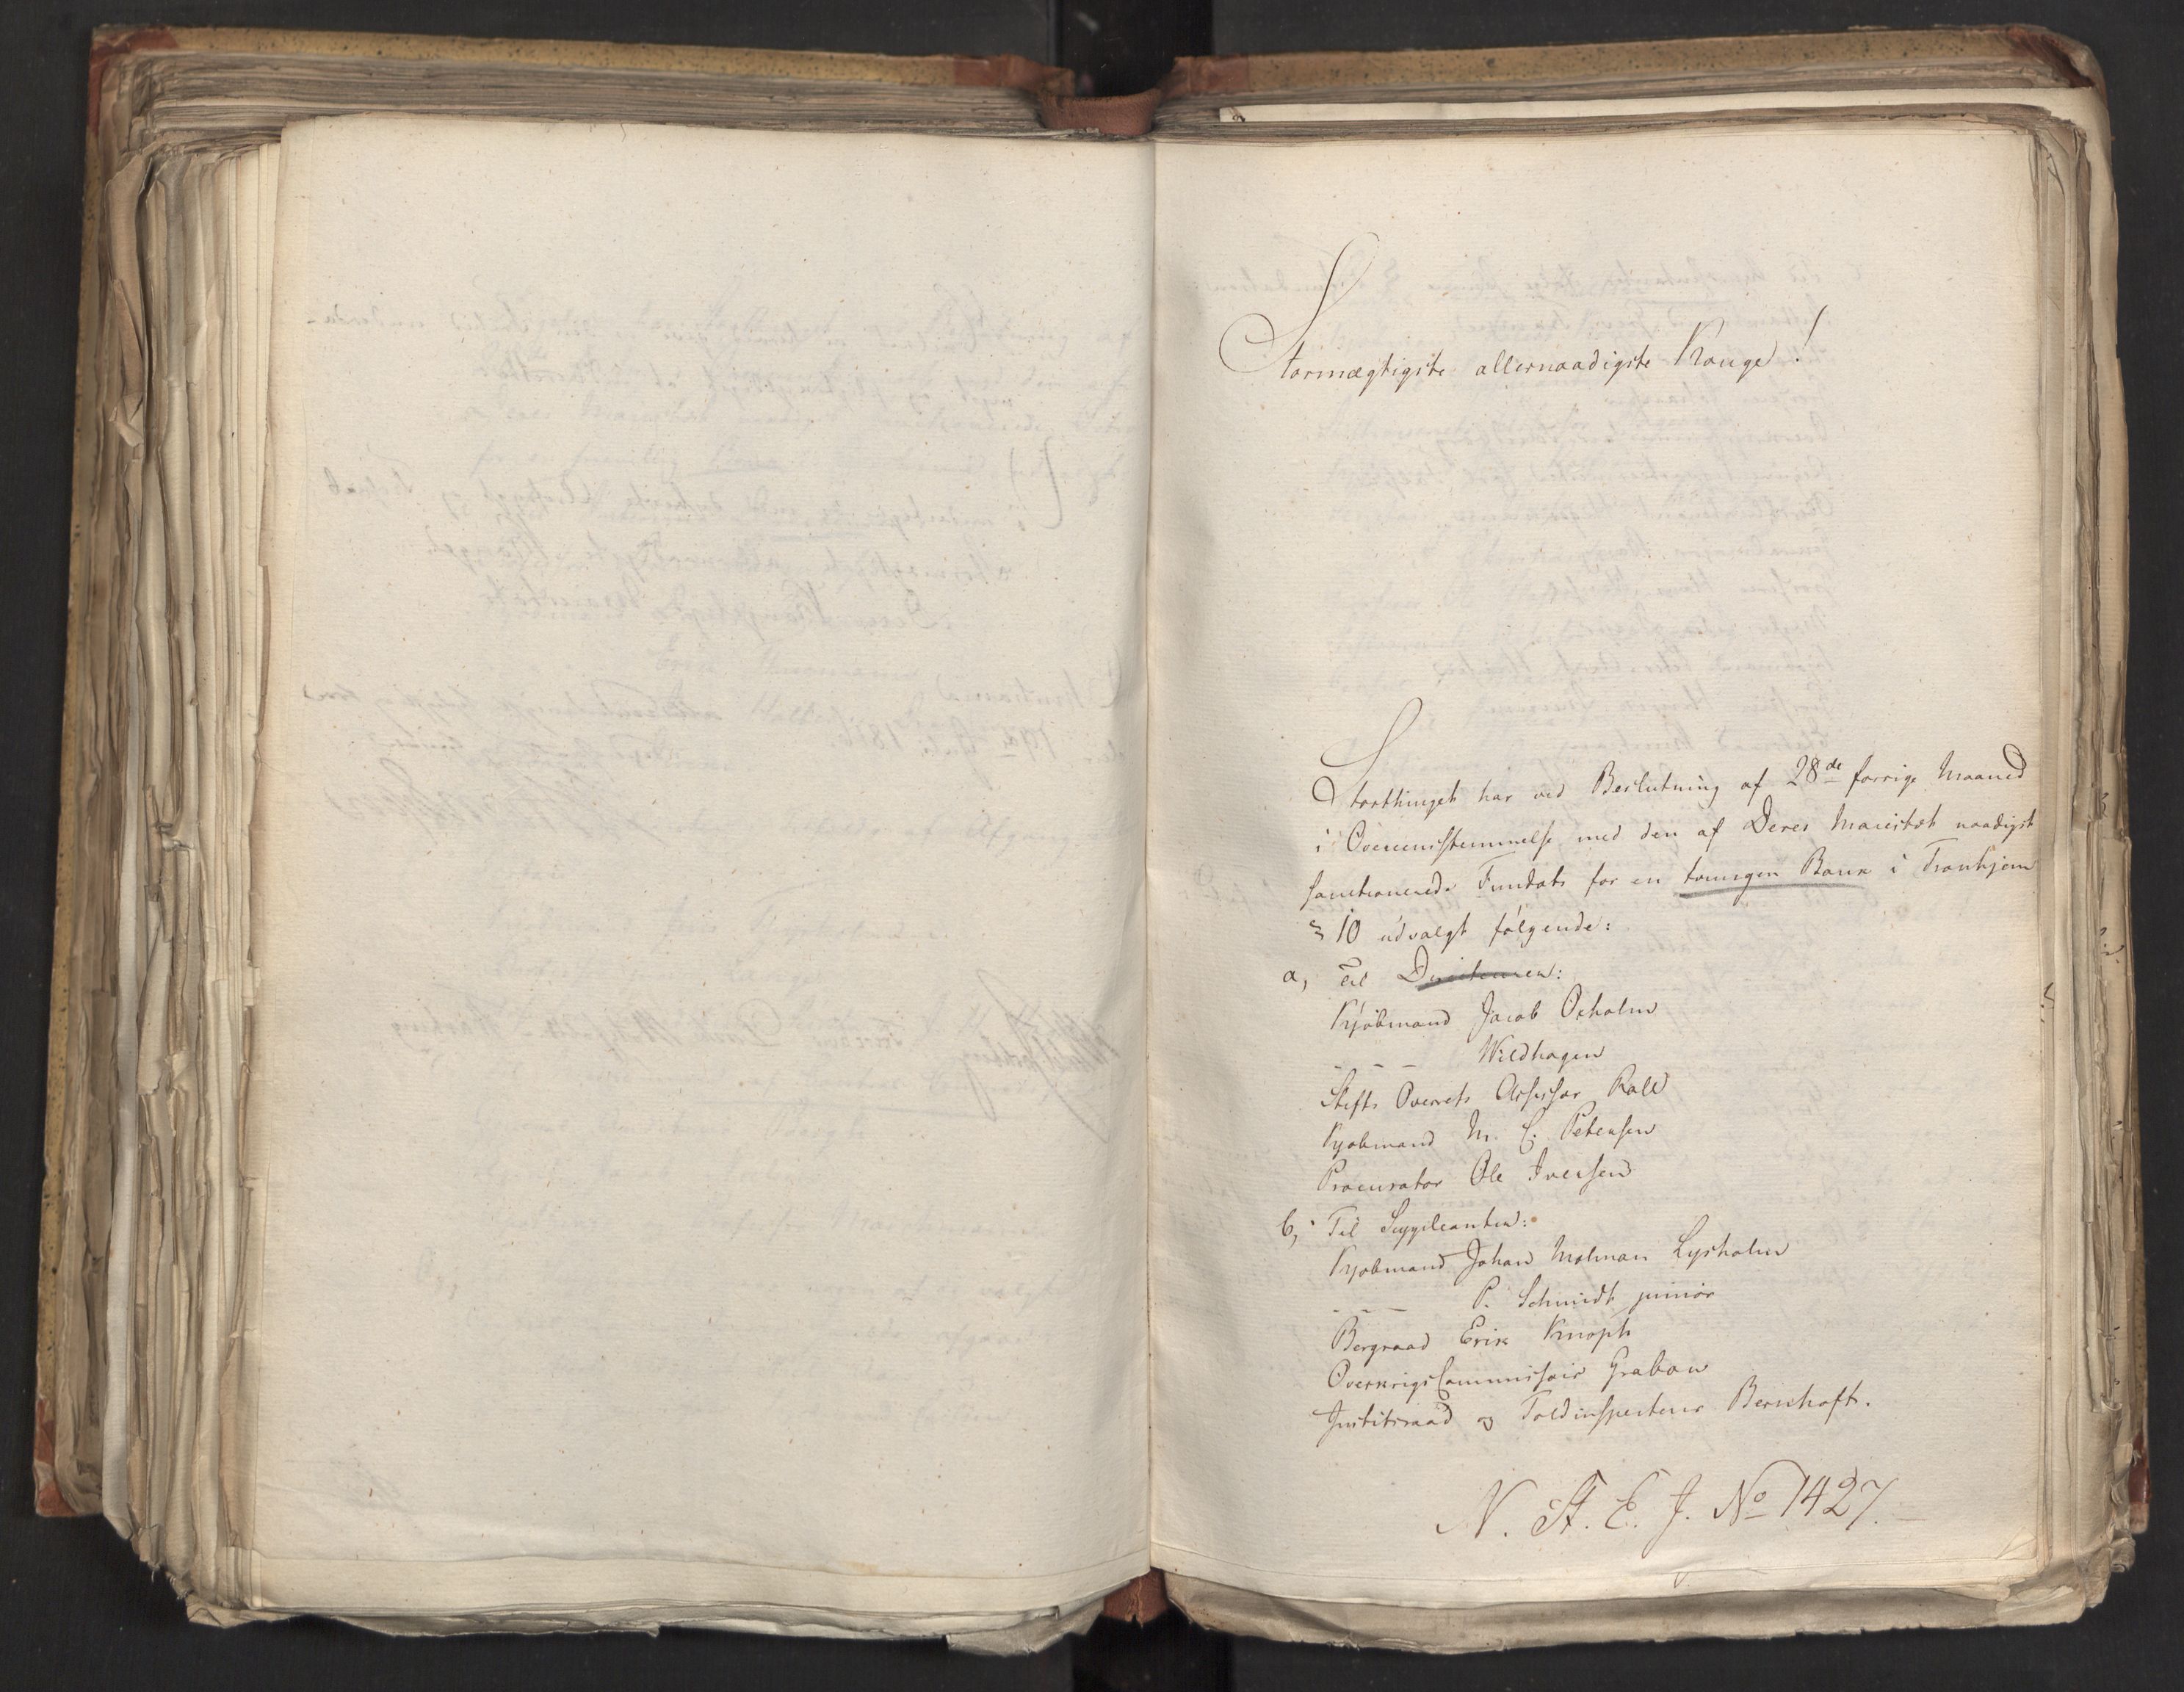 Stormægtigste allernaadigste Konge!
Storthinget har ved Beslutning af 28de forrige Maaned
i Overeensstemmelse med den af Deres Majestæt naadigst
sanctionerede Fundats for en Bank i Tronhjem
§ 10 udvalgt følgende:
a, Til Directeurer:
Kjöbmand Jacob Oxholm
- - - Wildhagen
Stifts Overrets Assessor Roll
Kjøbmand M. C. Petersen
Procurator Ole Iversen
b, Til Suppleanter:
Kjøbmand Johan Molman Lysholm
- - - P. Schmidt junior
Bergraad Erik Knoph
OverkrigsCommissair Grabow
Justitsraad og Toldinspecteur Berschoft.
N. St. E. J. No 1427.